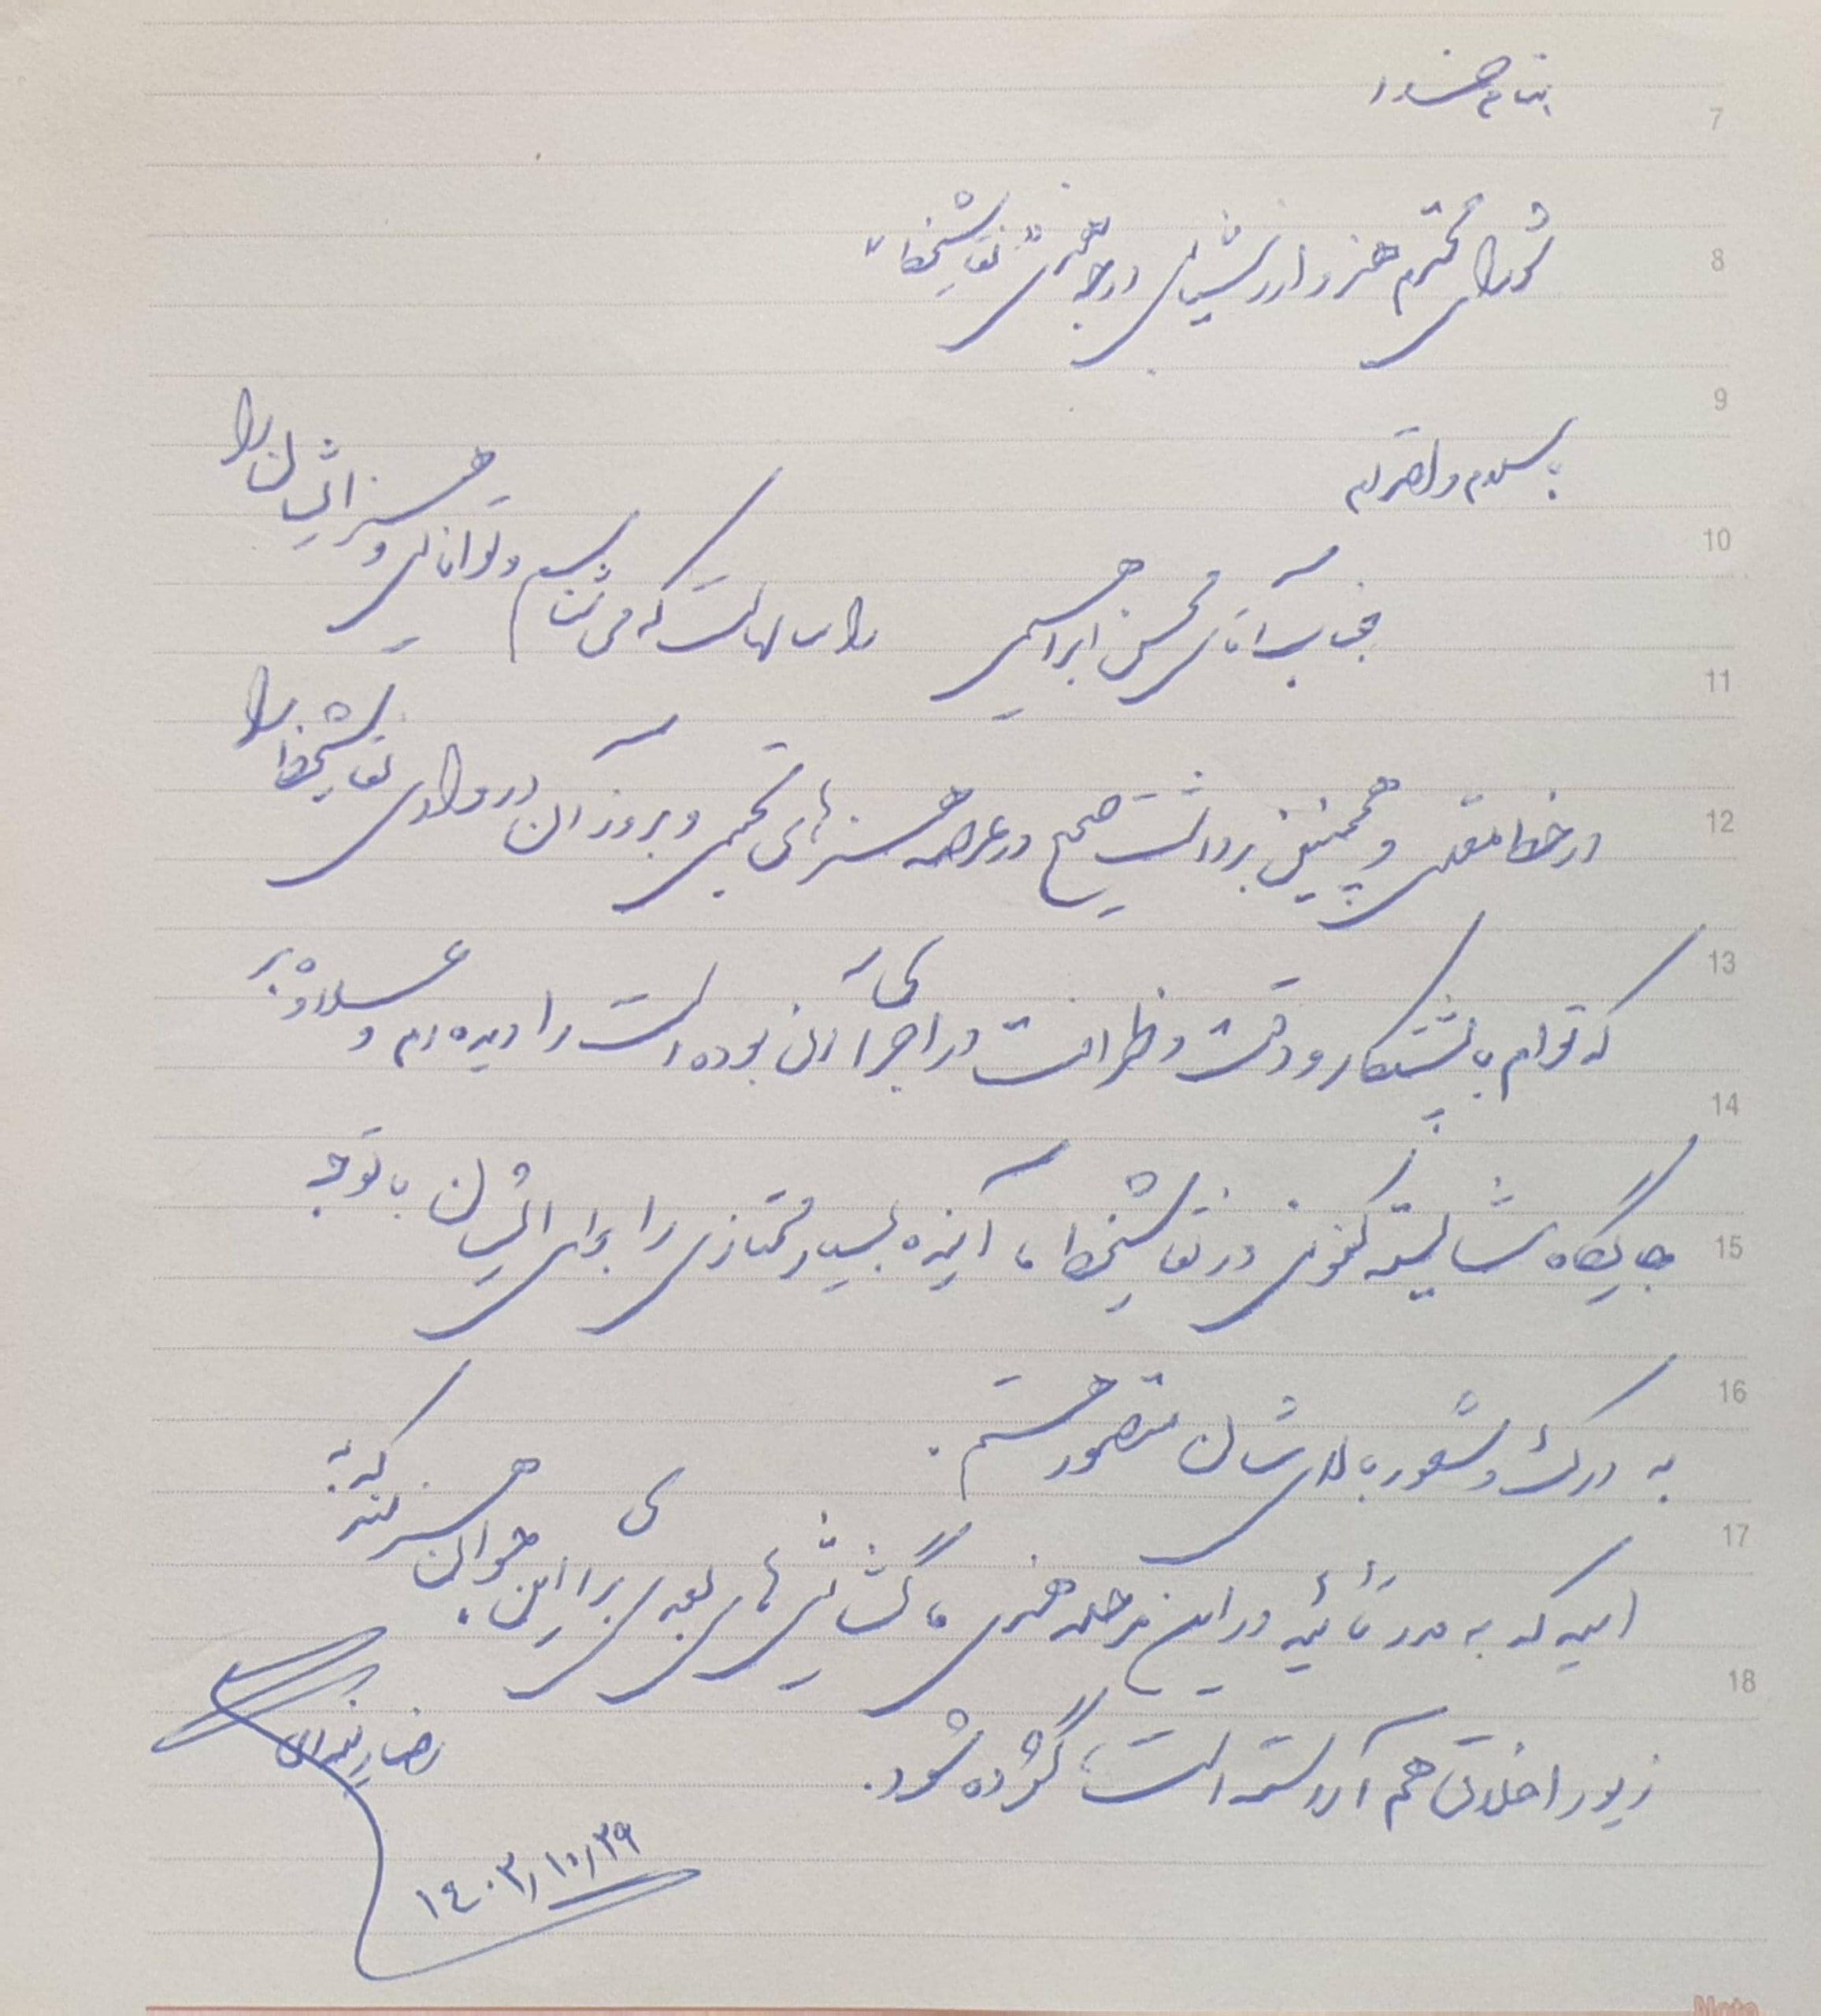 بنام خدا
شورای محترم هنر و ارزشیابی درجه هنری "نقاشیخط"
با سلام و احترام
جناب آقای محسن ابراهیمی را سالهاست که می شناسم و توانایی و هنر ایشان را
در خط معلی و همچنین برداشت صحیح در عرصه هنرهای تجسمی و بروز آن در وادی نقاشیخط را
که توام با پشتکار و دقت و ظرافت در اجرای آن بوده است را دیده ام و علاوه بر
جایگاه شایسته کنونی در نقاشیخط، آینده بسیار ممتازی را برای ایشان با توجه
به درک و شعور بالای شان متصور هستم.
امید که به مدد تائید در این مرحله هنری، گشایش های بعدی برای این جوان هنرمند که به
زیور اخلاق هم آراسته است، گشوده شود.
رضا
۱۴۰۳/۱۰/۲۹
7
8
9
10
11
12
13
14
15
16
17
18
Note